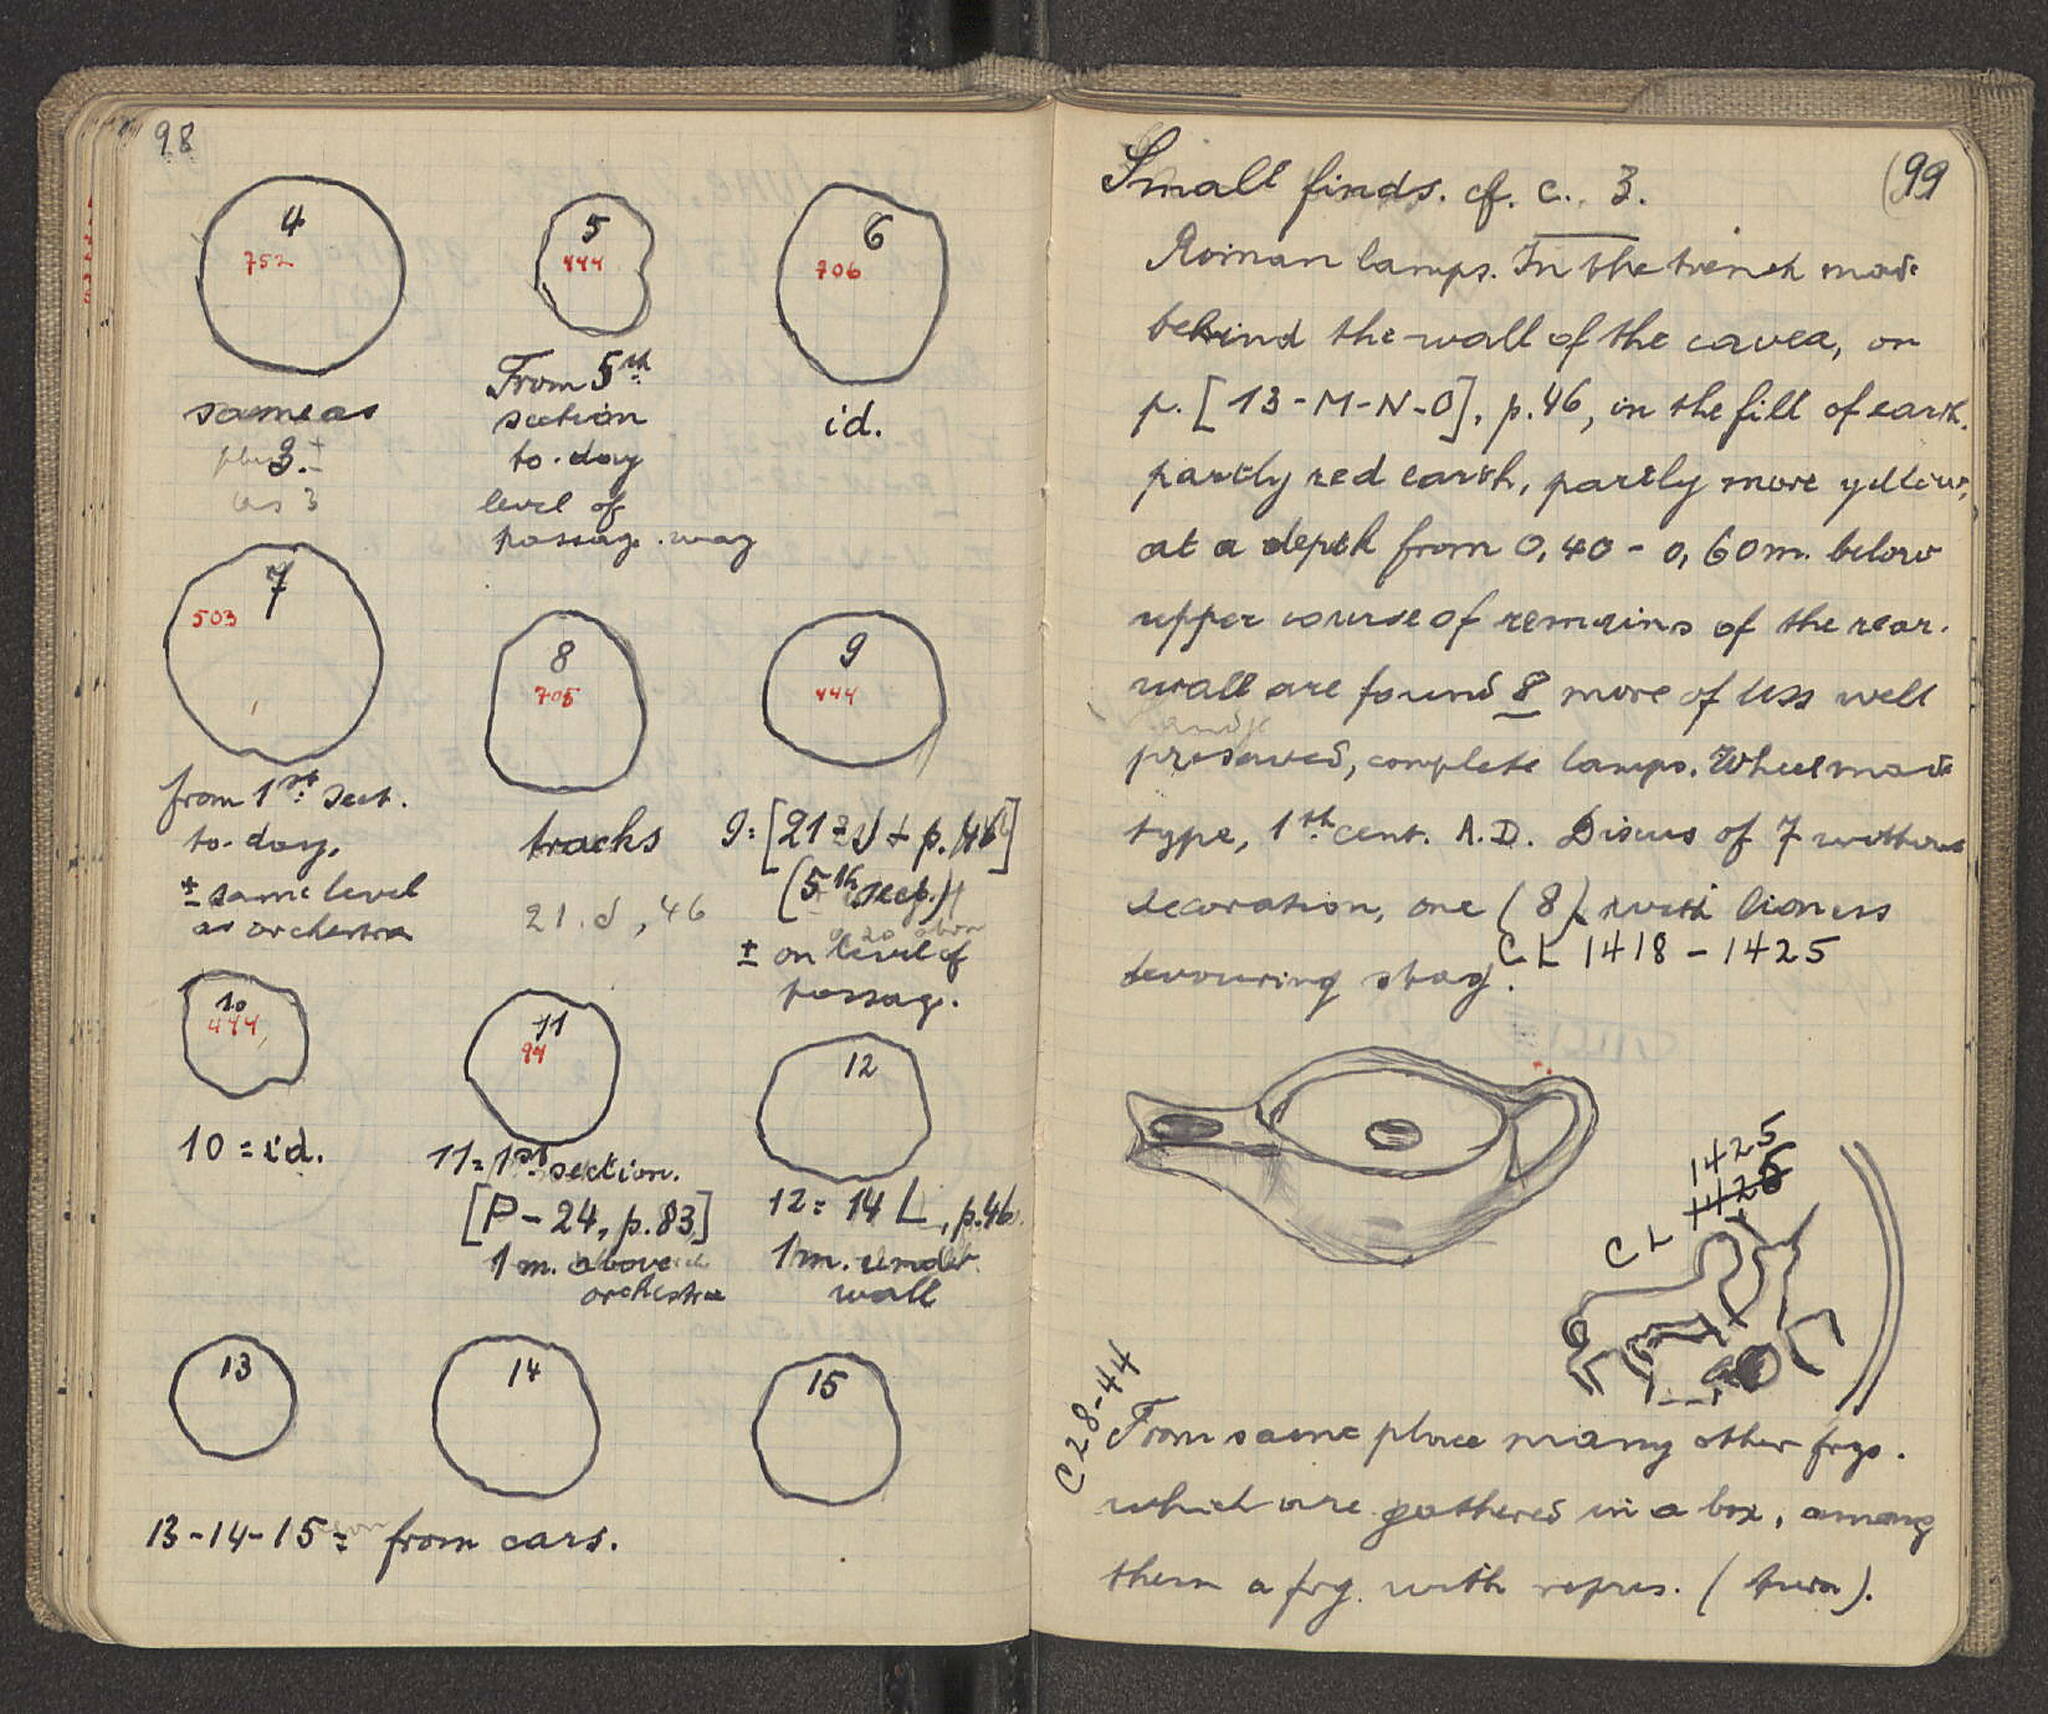 98
4
752
same as
3. ±
as 3
5
444
From 5th
section
to-day
level of
passage-way
6
706
id.
7
503
from 1st sect.
to-day,
± same level
as orchestra
8
705
tracks
21.J, 46
9
444
9= [21 J p. 46]
(5th sect.)
± on level of
passag.
10
444
10 = id.
11
94
11= 1st section.
[P-24, p.83]
1 m. above
orchestra
12
12= 14 L, p.46.
1 m. under
wall
13
14
15
13-14-15 = from cars.
99
Small finds. cf. C. 3.
Roman lamps. In the trench made
behind the wall of the cavea, on
p. [13-M-N-O], p.46, in the fill of earth.
partly red earth, partly more yellow,
at a depth from 0,40 - 0,60 m. below
upper course of remains of the rear.
wall are found 8 more of less well
preserved, complete lamps. Wheelmade
type, 1th cent. A.D. Discus of 7 without
decoration, one (8) with lioness
devouring stag. CL 1418-1425
1425
CL 1426
C 28-44
From same place many other frgs.
which are gathered in a box, among
them a frg. with repres. (turn).